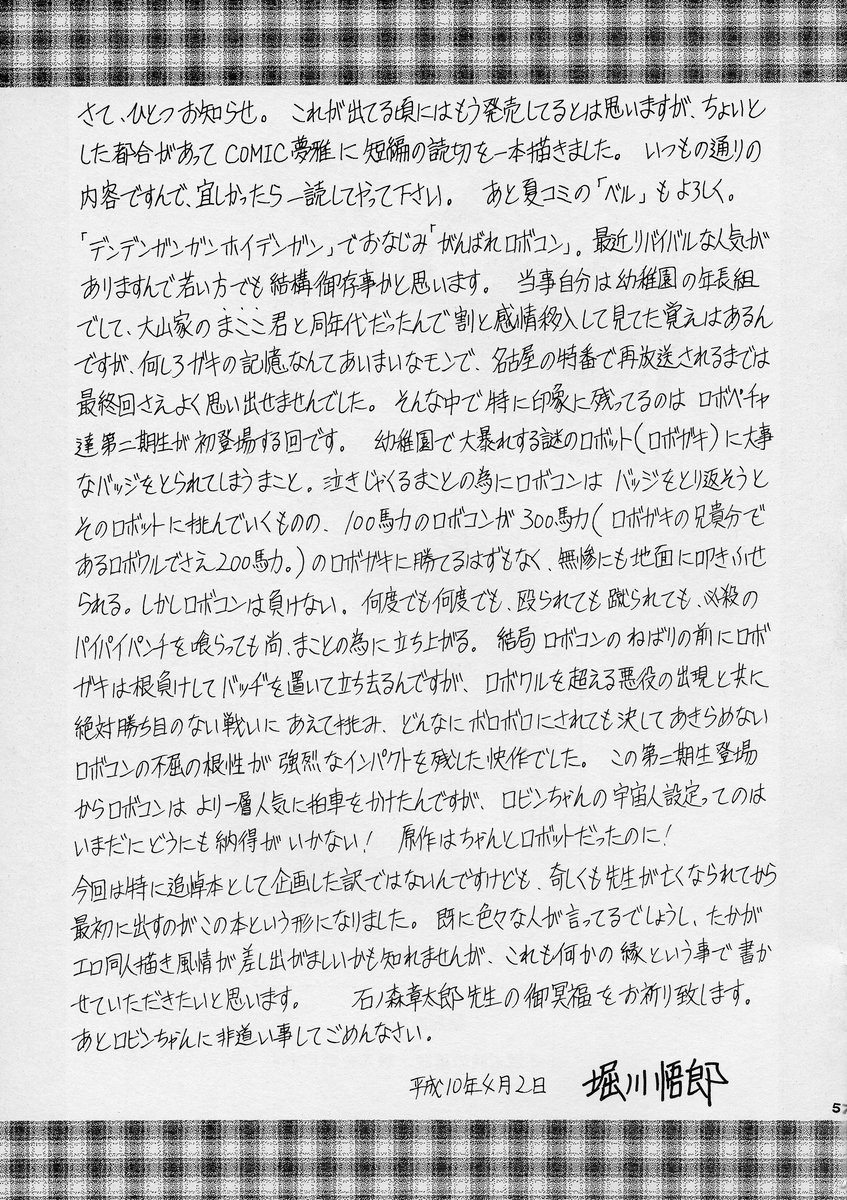 さて、ひとつお知らせ。 これが出てる頃にはもう発売してるとは思いますが、ちょいと
した都合があって COMIC夢雅に 短編の読切を一本描きました。 いつもの通りの
内容ですんで、宜しかったら一読してやって下さい。 あと夏コミの「ベル」もよろしく。
「デンデンガンガンホイデンガン」でおなじみ「がんばれロボコン」。最近リバイバルな人気が
ありますんで若い方でも結構御存事かと思います。 当事自分は幼稚園の年長組
でして、大山家のまここ君と同年代だったんで割と感情移入して見てた覚えはあるん
ですが、何しろガキの記憶なんてあいまいなモンで、名古屋の特番で再放送されるまでは
最終回さえよく思い出せませんでした。そんな中で特に印象に残ってるのは ロボペチャ
達第二期生が初登場する回です。 幼稚園で大暴れする謎のロボット(ロボガキ)に大事
なバッジをとられてしまうまこと。泣きじゃくるまことの為にロボコンは バッジをとり返そうと
そのロボットに挑んでいくものの、100馬力のロボコンが300馬力(ロボガキの兄貴分で
あるロボワルでさえ200馬力。)のロボガキに勝てるはずもなく、無惨にも地面に叩きふせ
られる。しかしロボコンは負けない。何度でも何度でも、殴られても蹴られても、必殺の
パイパイパンチを喰らっても尚、まことの為に立ち上がる。結局ロボコンのねばりの前にロボ
ガキは根負けしてバッヂを置いて立ち去るんですが、ロボワルを超える悪役の出現と共に
絶対勝ち目のない戦いに あえて挑み、どんなにボロボロにされても決してあきらめない
ロボコンの不屈の根性が 強烈なインパクトを残した快作でした。 この第二期生登場
からロボコンは より一層人気に拍車をかけたんですが、ロビンちゃんの宇宙人設定ってのは
いまだにどうにも納得がいかない! 原作はちゃんとロボットだったのに!
今回は特に追悼本として企画した訳ではないんですけども、奇しくも先生が亡くなられてから
最初に出すのがこの本という形になりました。既に色々な人が言ってるでしょうし、たかが
エロ同人描き風情が差し出がましいかも知れませんが、これも何かの縁という事で書か
せていただきたいと思います。 石ノ森章太郎先生の御冥福をお祈り致します。
あとロビンちゃんに非道い事してごめんなさい。
平成10年4月2日 堀川悟郎
57